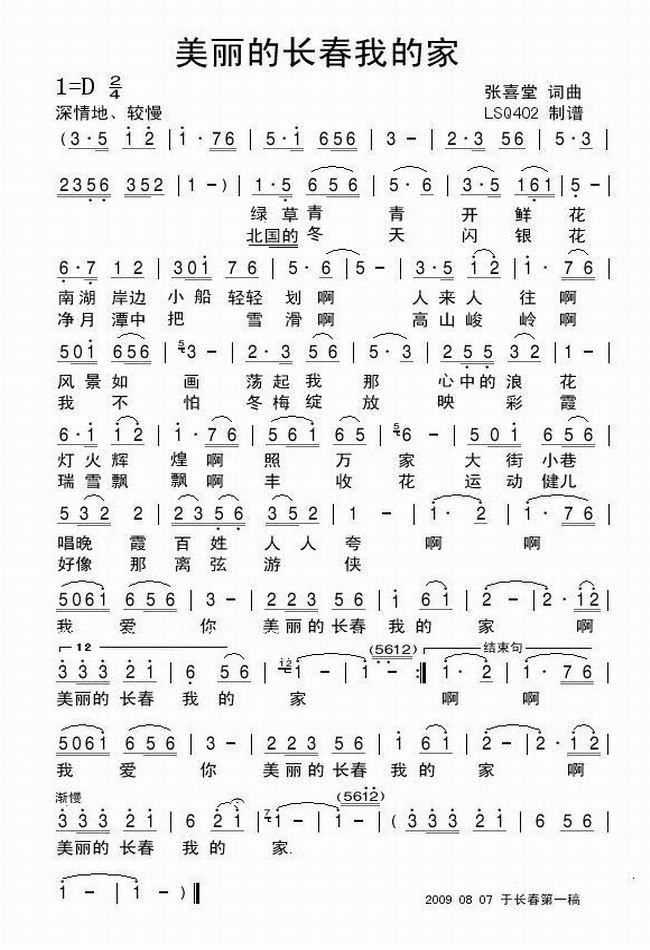 美丽的长春我的家
1=D 2/4
张喜堂 词曲
深情地、较慢
LSQ402 制谱
(3·5 1 2 | 1· 76 | 5·1 656 | 3 - | 2·3 56 | 5·3 |
2356 352 | 1 - ) | 1·5 656 | 5·6 | 3·5 161 | 5 - |
绿草青 青 开 鲜 花
北国的冬 天 闪 银 花
6·7 12 | 301 76 | 5·6 | 5 - | 3·5 12 | 1· 76 |
南湖 岸边 小船 轻轻 划啊 人来人 往啊
净月 潭中 把 雪 滑啊 高山峻 岭啊
501 656 | 5 3 - | 2·3 56 | 5·3 | 255 32 | 1 - |
风景如 画 荡起我 那 心中的浪 花
我 不 怕 冬梅绽 放 映 彩 霞
6·1 12 | 1· 76 | 561 65 | 5 6 - | 501 656 |
灯火辉 煌啊 照 万 家 大 街 小巷
瑞雪飘 飘啊 丰 收 花 运 动 健儿
532 2 | 2356 352 | 1 - | 1· 2 | 1· 76 |
唱晚 霞 百 姓 人 人 夸 啊 啊
好像 那 离 弦 游 侠
5061 656 | 3 - | 223 56 | 1 61 | 2 - | 2· 12 |
我 爱 你 美丽的长春 我的 家 啊
12 (5612) 结束句
333 21 | 6 56 | 12 1 - | 1 - :| 1· 2 | 1· 76 |
美丽的 长春 我 的 家 啊 啊
5061 656 | 3 - | 223 56 | 1 61 | 2 - | 2· 12 |
我 爱 你 美丽的长春我的 家 啊
渐慢 (5612)
333 21 | 6 21 | 7 1 - | 1 - | (333 21 | 6 56 |
美丽的 长春 我 的 家.
1 - | 1 - ) ||
2009 08 07 于长春第一稿